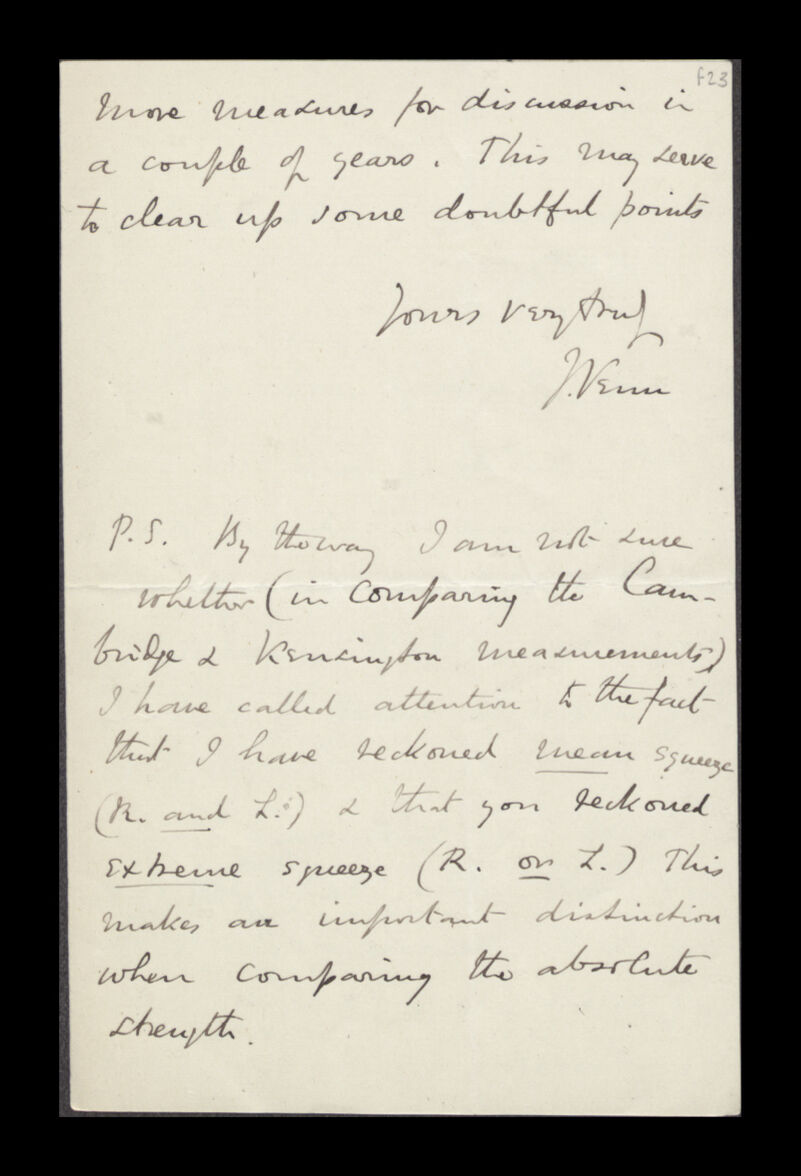 f23
more measures for discussion in
a couple of years. This may serve
to clear up some doubtful points
Yours very truly
J. Venn
P.S. By the way I am not sure
whether (in comparing the Cam-
bridge & Kensington measurements)
I have called attention to the fact
that I have reckoned mean squeeze
(R. and L.) & that you reckoned
extreme squeeze (R. or L.) This
makes an important distinction
when comparing the absolute
strength.